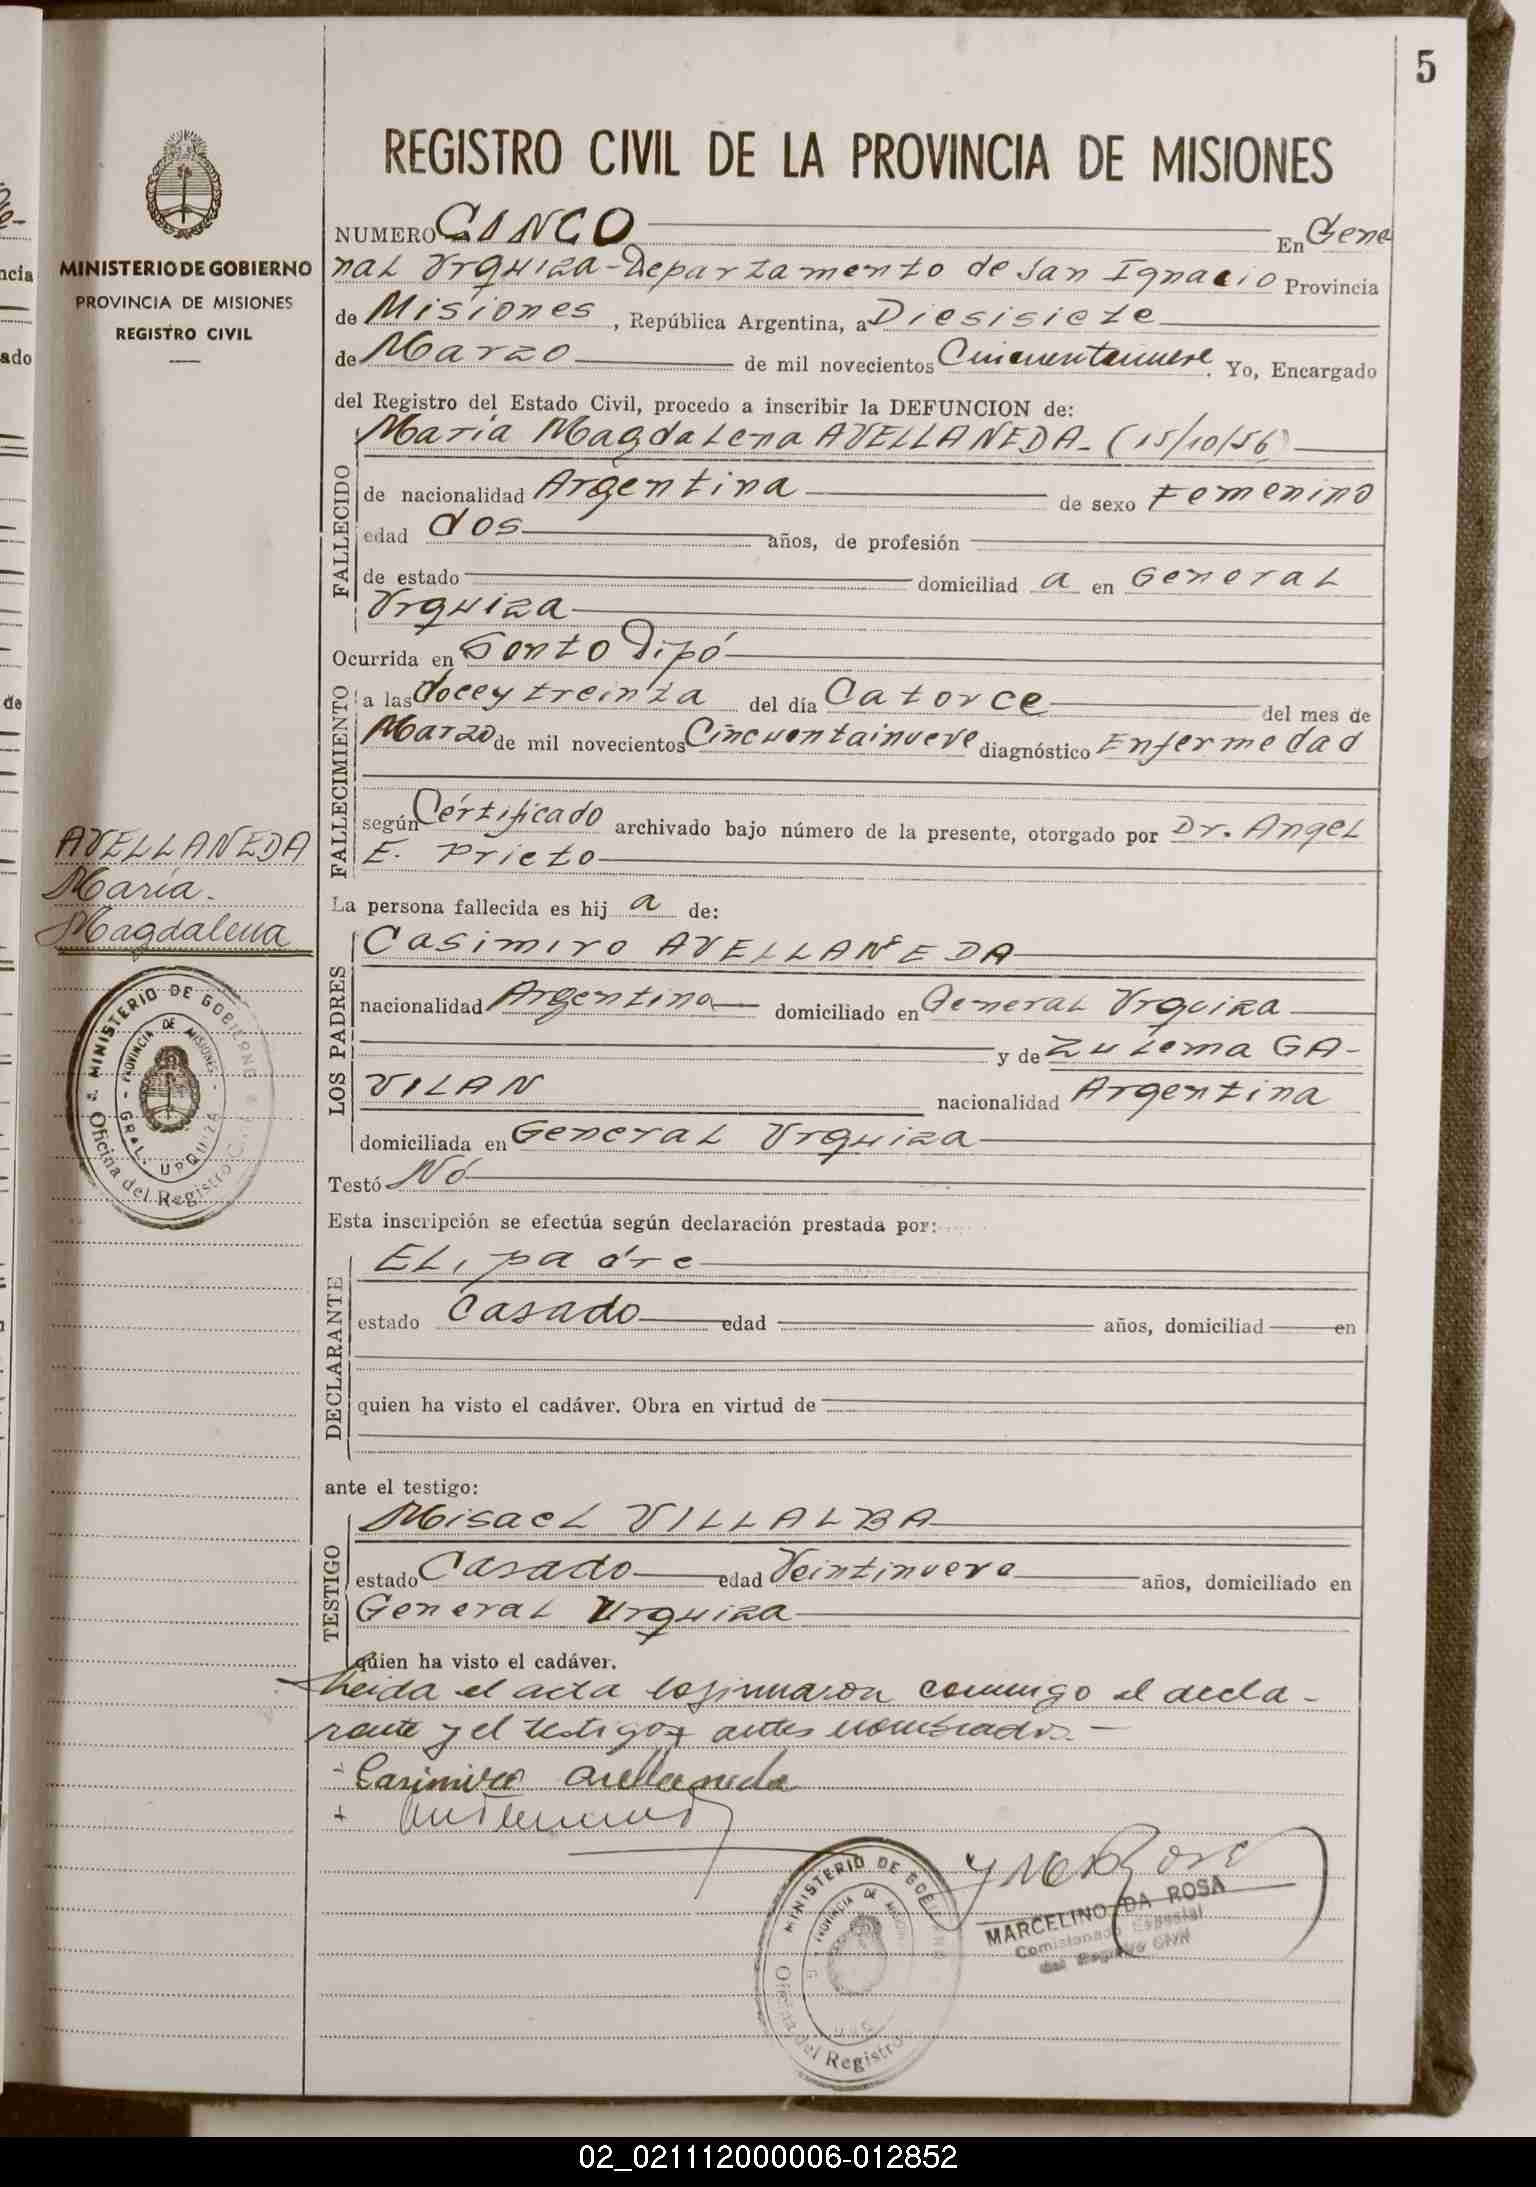 5
REGISTRO CIVIL DE LA PROVINCIA DE MISIONES
MINISTERIO DE GOBIERNO
PROVINCIA DE MISIONES
REGISTRO CIVIL
NUMERO CINCO En Gene
ral Urquiza - Departamento de San Ignacio Provincia
de Misiones, República Argentina, a Diesisiete
de Marzo de mil novecientos Cincuentainueve. Yo, Encargado
del Registro del Estado Civil, procedo a inscribir la DEFUNCION de:
FALLECIDO
María Magdalena AVELLANEDA - (15/10/56)
de nacionalidad Argentina de sexo Femenino
edad dos años, de profesión
de estado domiciliad a en General
Urquiza
Ocurrida en
FALLECIMIENTO
a las doce y treinta del día Catorce del mes de
Marzo de mil novecientos Cincuentainueve diagnóstico Enfermedad
según Certificado archivado bajo número de la presente, otorgado por Dr. Angel
E. Prieto
AVELLANEDA
María
Magdalena
La persona fallecida es hij a de:
LOS PADRES
Casimiro AVELLANEDA
nacionalidad Argentina domiciliado en General Urquiza
y de Zulema GA-
VILAN nacionalidad Argentina
domiciliada en General Urquiza
MINISTERIO DE GOBIERNO
PROVINCIA DE MISIONES
GRAL. URQUIZA
Oficina del Registro
Testó Nó
Esta inscripción se efectúa según declaración prestada por:
DECLARANTE
EL, padre
estado Casado edad años, domiciliad en
quien ha visto el cadáver. Obra en virtud de
ante el testigo:
TESTIGO
Misael VILLALBA
estado Casado edad Veintinueve años, domiciliado en
General Urquiza
quien ha visto el cadáver.
Leida el acta lo firmaron conmigo el decla-
rante y el testigo antes nombrados. -
Casimiro Avellaneda
MINISTERIO DE GOBIERNO
PROVINCIA DE MISIONES
Oficina del Registro
MARCELINO DA ROSA
Comisionado Especial
del Registro Civil
02_021112000006-012852